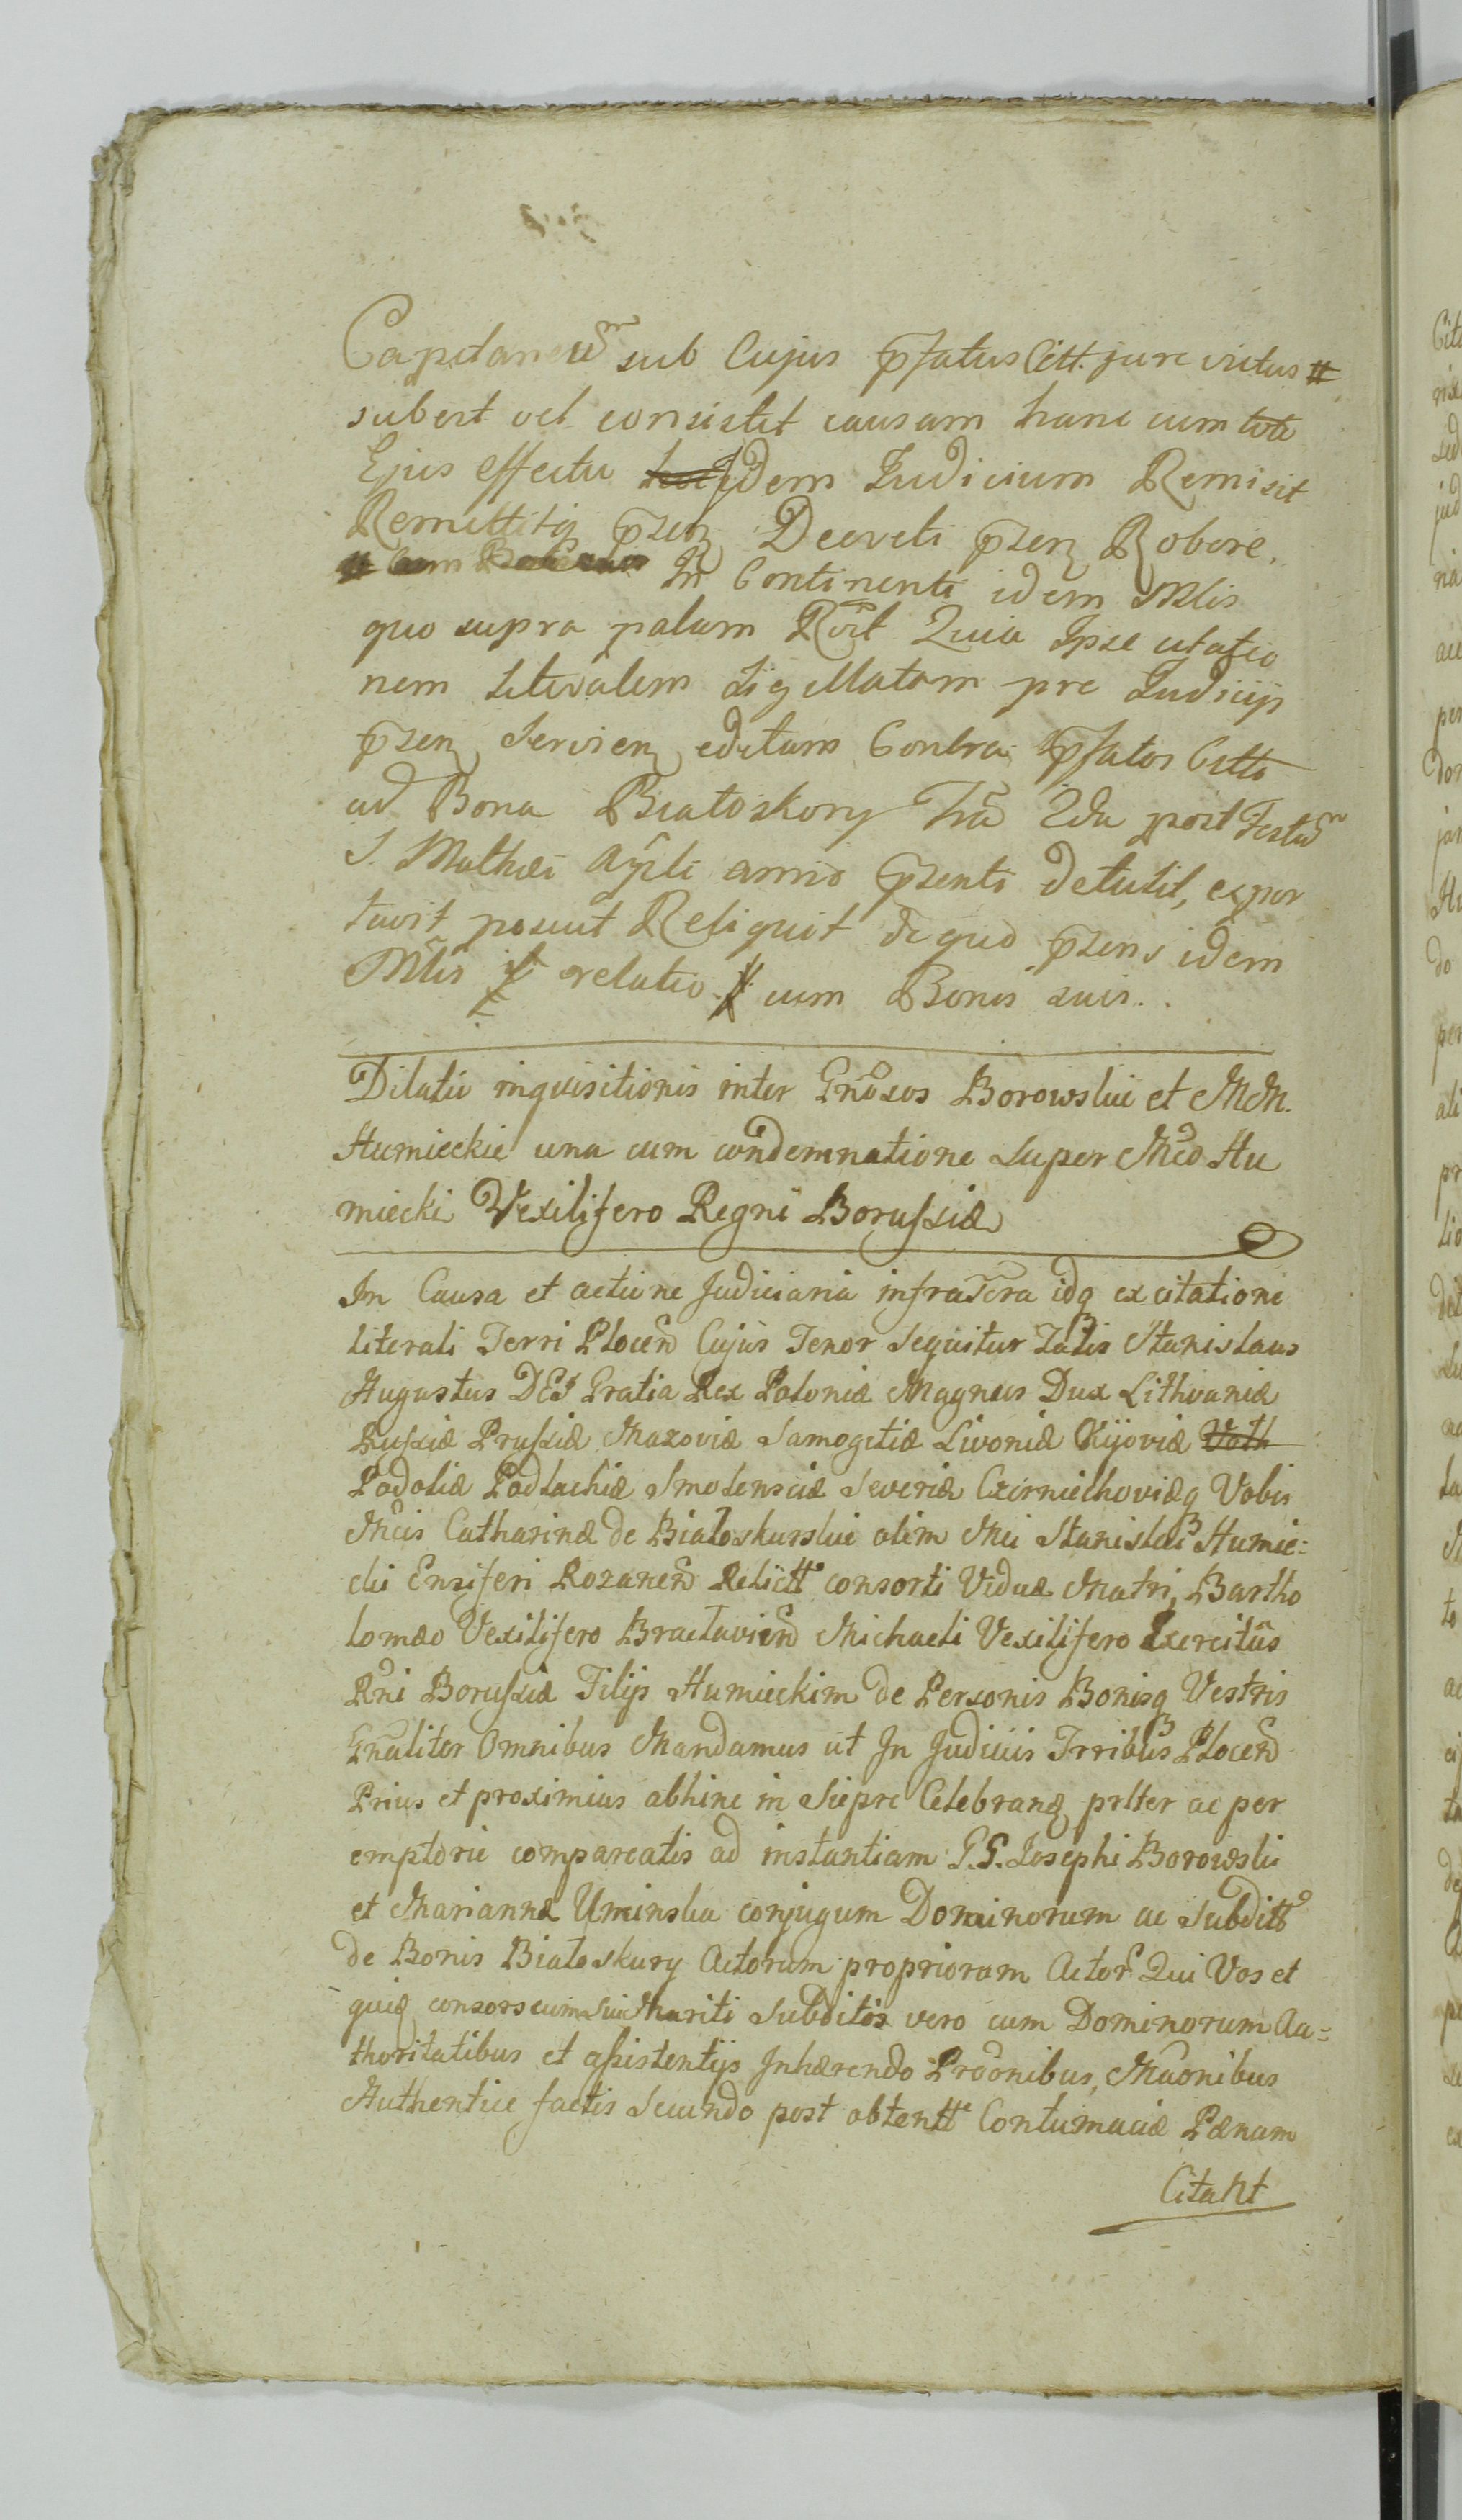 Capitaneũ sub Cujus p̃fatus Citt. jure victus #
suberit vel consistet causam hanc cum toto
Ejus effectu idem Judicium Remisit
Remittitq p̃senq Decreti p̃senq Robore.
In Continenti idem Mlis
quo supra palam Rõit Quia Ipse citatio
nem literalem Sigillatam pre Judicijs
p̃senq Servienq editam Contra p̃fatos Citti
ad Bona Białoskory fra 2da post Festũ
S. Mathæi Apli anno p̃senti detulit, expor
tavit, posuit Reliquit de quo p̃sens idem
Mlis relatio cum Bonis suis..
Dilatio inquisitionis inter Gnosos Borowskie et MM.
Humieckie una cum condemnatione super Mco Hu
miecki Vexilifero Regni Borussiæ
In Causa et actione Judiciaria infrascra idq ex citatione
literali Terri Plocen Cujus Tenor sequitur Talis Stanislaus
Augustus DEI Gratia Rex Poloniæ Magnus Dux Lithvaniæ
Russiæ Prussiæ Mazoviæ Samogitiæ Livoniæ Kijoviæ Voth
Podoliæ Podlachiæ Smolensciæ Severiæ Czerniechoviæq Vobis
Mcis Catharinæ de Białoskurskie olim Mci Stanislai Humie=
cki Ensiferi Rozanen Relictt consorti Viduæ Matri, Bartho
lomæo Vexilifero Braclavien Michaeli Vexilifero Exercitus
Rni Borussiæ Filijs Humieckim de Personis Bonisq Vestris
Gnaliter Omnibus Mandamus ut In Judiciis Trribus Plocen
Prius et proximius abhinc in Siepre Celebranq prlter ac per
emptorie compareatis ad instantiam G.G. Josephi Borowski
et Mariannæ Uminska conjugum Dominorum ac Subditt
de Bonis Białoskury Actorum propriorum Actor Qui Vos et
quiq consors cum sui Mariti Subditos vero cum Dominorum Au=
thoritatibus et assistentijs Inhærendo Prõonibus, Mãonibus
Authentice factis Secundo post obtentt Contumaciæ Pænam
Citant